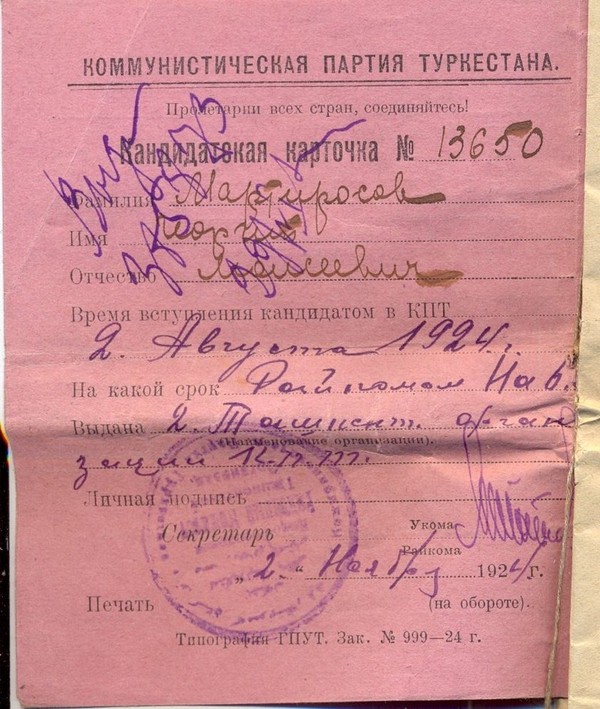 КОММУНИСТИЧЕСКАЯ ПАРТИЯ ТУРКЕСТАНА.
Пролетарии всех стран, соединяйтесь!
Кандидатская карточка № 13650
Фамилия Мартиросов
Имя Георгий
Отчество Моисеевич
Время вступления кандидатом в КПТ
2. Августа 1924 г.
На какой срок Райкомом Нов.
Выдана г. Ташкент. органи
(Наименование организации).
зации К.п.т.
Личная подпись
Секретарь Укома
Райкома
„2“ Ноября 1924 г.
Печать (на обороте).
Типография ГПУТ. Зак. № 999—24 г.